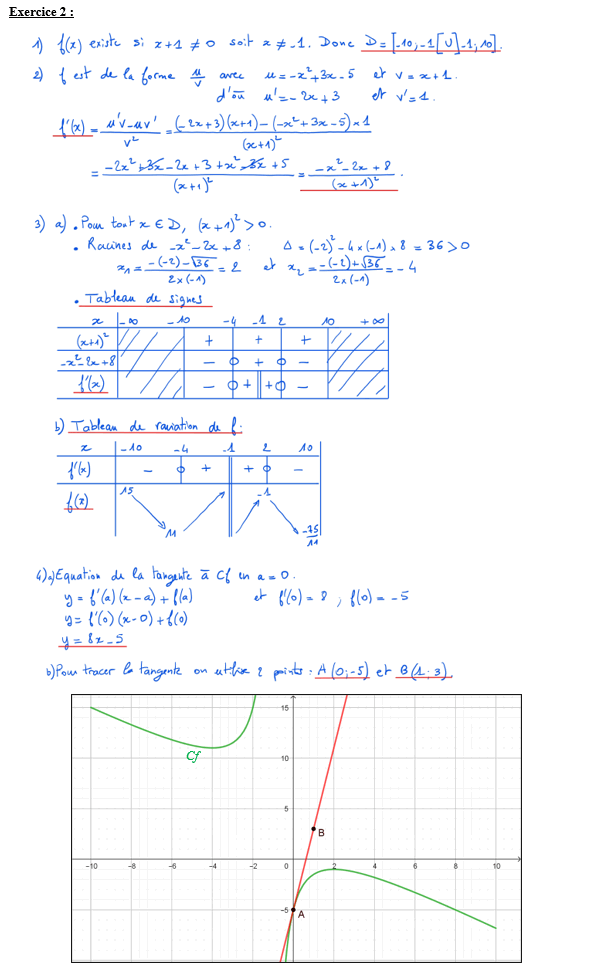 Exercice 2 :
1) f(x) existe si x+1 ≠ 0 soit x ≠ -1. Donc D = [-10,-1[ U ]-1;10].
2) f est de la forme u/v avec u = -x²+3x-5 et v = x+1.
d'où u' = -2x+3 et v' = 1.
f'(x) = (u'v-uv')/v² = ((-2x+3)(x+1)-(-x²+3x-5)×1)/(x+1)²
= (-2x²+3x-2x+3+x²-3x+5)/(x+1)² = (-x²-2x+8)/(x+1)².
3) a) • Pour tout x ∈ D, (x+1)² > 0.
• Racines de -x²-2x+8 : Δ = (-2)²-4×(-1)×8 = 36 > 0
x₁ = (-(-2)-√36)/(2×(-1)) = 2 et x₂ = (-(-2)+√36)/(2×(-1)) = -4
• Tableau de signes
x -∞ -10 -4 -1 2 10 +∞
(x+1)² + + +
-x²-2x+8 - 0 + 0 -
f'(x) - 0 + || + 0 -
b) Tableau de variation de f.
x -10 -4 -1 2 10
f'(x) - 0 + || + 0 -
f(x) 15 11 -1 -75/11
4) a) Equation de la tangente à Cf en a = 0.
y = f'(a)(x-a)+f(a) et f'(0) = 8 ; f(0) = -5
y = f'(0)(x-0)+f(0)
y = 8x-5
b) Pour tracer la tangente on utilise 2 points : A(0;-5) et B(1;3).
15
10
Cf
5
B
-10 -8 -6 -4 -2 0 2 4 6 8 10
-5 A